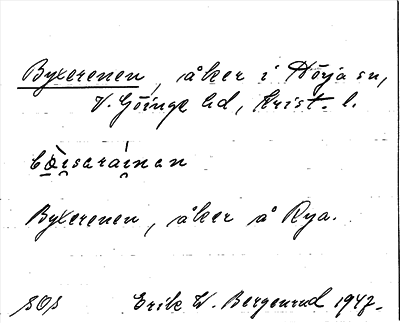 Byxerenen, åker i Röya sn,
V. Göinge hd, Krist. l.
bœ̀i̯sarái̯nan
Byxerenen, åker å Rya.
SOS Erik W. Bergenrud 1947.